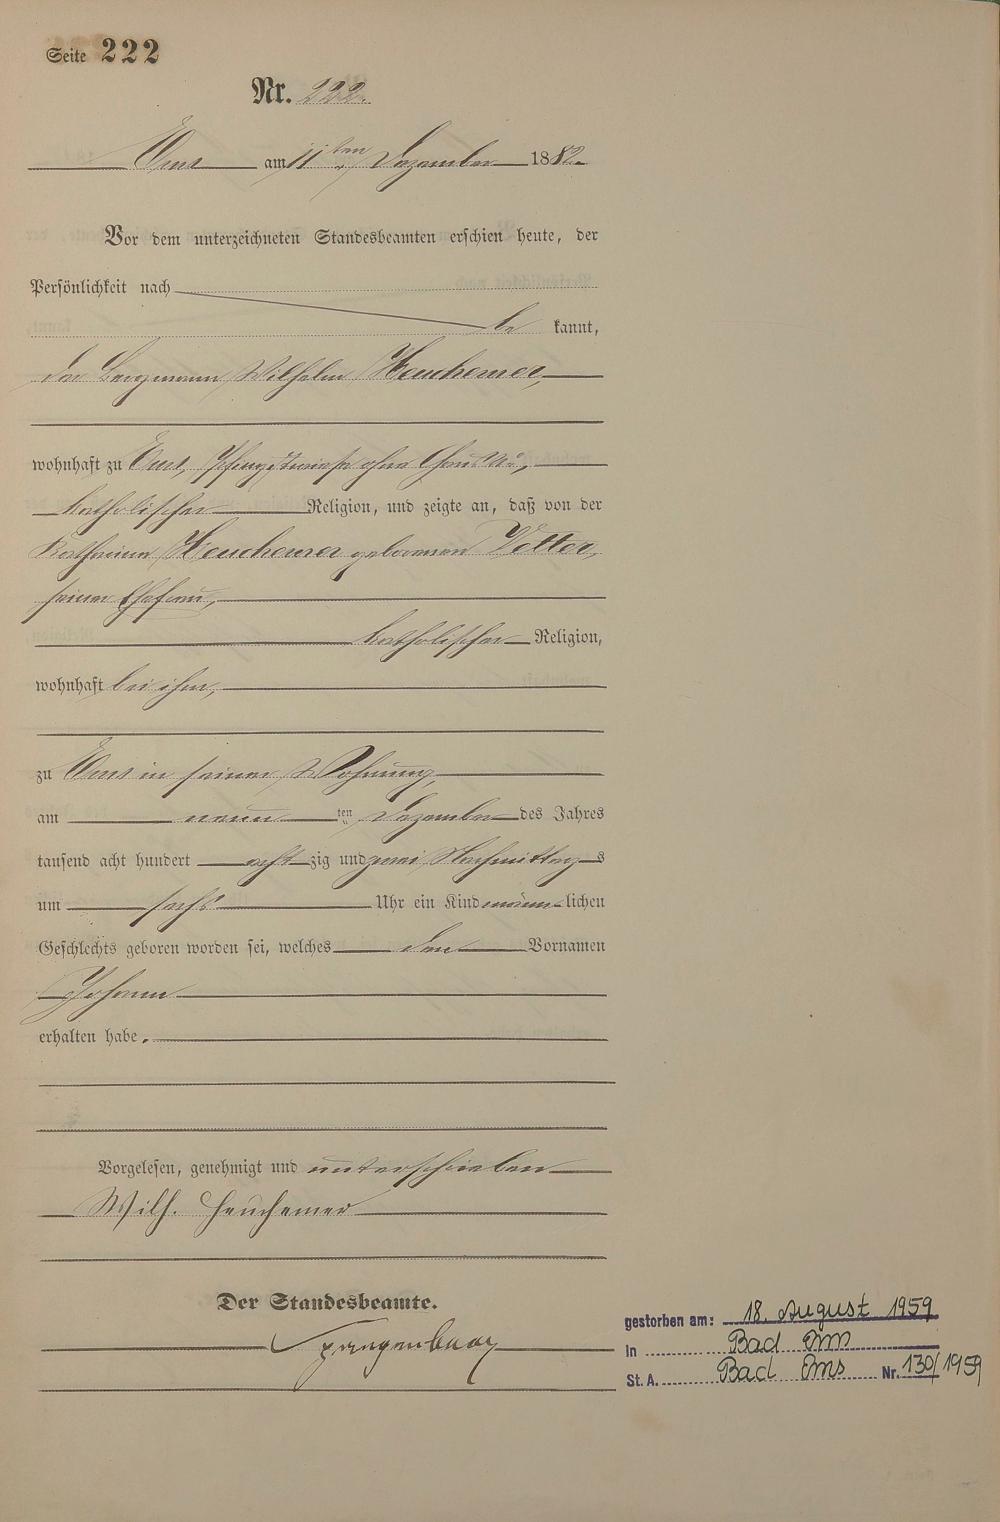 Seite 222
Nr. 222.
Ems am 11ten Dezember 1882.
Vor dem unterzeichneten Standesbeamten erschien heute, der
Persönlichkeit nach
be kannt,
der Bergmann Wilhelm Heuchemer,
wohnhaft zu Ems, Pfingstwiese ohne Haus No,
katholischer Religion, und zeigte an, daß von der
Katharina Heuchemer geborenen Vetter,
seiner Ehefrau,
katholischer Religion,
wohnhaft bei ihm,
zu Ems in seiner Wohnung,
am neun ten Dezember des Jahres
tausend acht hundert acht zig und zwei Nachmittag s
um sechs Uhr ein Kind männ lichen
Geschlechts geboren worden sei, welches den Vornamen
Johann
erhalten habe.
Vorgelesen, genehmigt und unterschrieben
Wilh. Heuchemer
Der Standesbeamte.
gestorben am: 18. August 1959
in Bad Ems
St. A. Bad Ems Nr. 130/1959